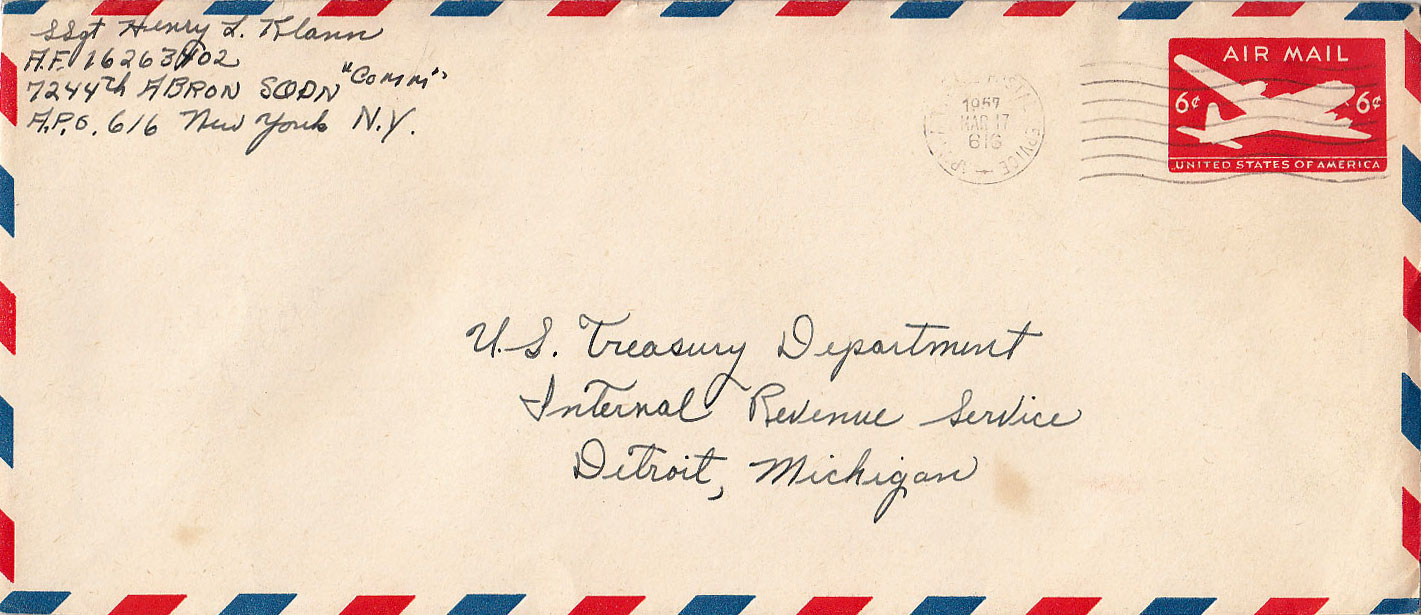 SSgt Henry L. Klann
A.F. 16263402
7244th ABRON SQDN "Comm"
A.P.O. 616 New York N.Y.
1957
MAR 17
616
AIR MAIL
6¢ 6¢
UNITED STATES OF AMERICA
U.S. Treasury Department
Internal Revenue Service
Detroit, Michigan